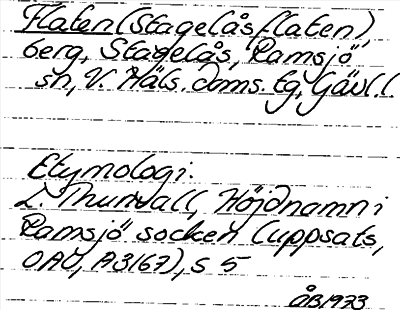 Flaten (Stagelåsflaten),
berg, Stagelås, Ramsjö
sn, V. Häls. doms. tg, Gävl.l.
Etymologi:
L. Thunvall, Höjdnamn i
Ramsjö socken (uppsats,
OAU, A3(67), s 5
ÅB 1973